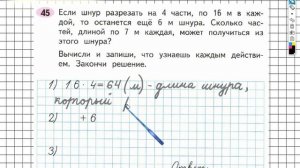 45 Если шнур разрезать на 4 части, по 16 м в каж-
дой, то останется ещё 6 м шнура. Сколько час-
тей, длиной по 7 м каждая, может получиться из
этого шнура?
Вычисли и запиши, что узнаешь каждым действи-
ем. Закончи решение.
1) 16 · 4 = 64 (м) - длина шнура,
который
2) + 6
3)
Ответ: